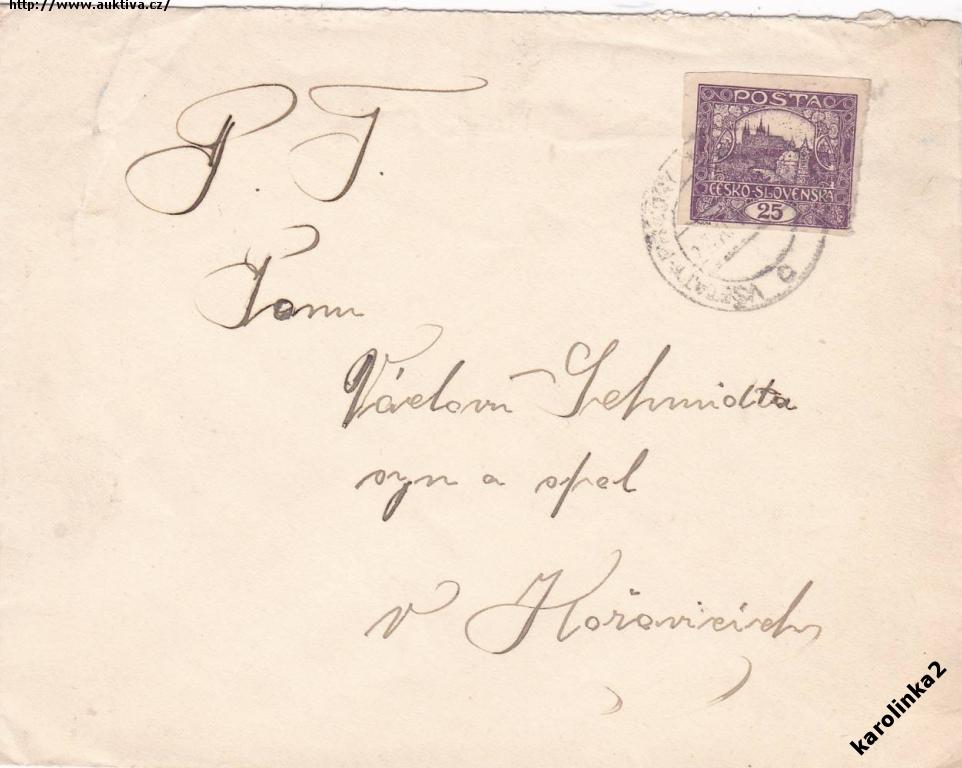 http://www.auktiva.cz/
POSTA
ČESKO-SLOVENSKÁ
25
P. T.
Panu
Václavu Schmidta
syn a spol
v Kořavicích
karolinka2